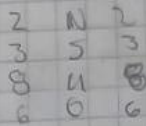 2 N 2
3 5 3
8 4 8
6 0 6